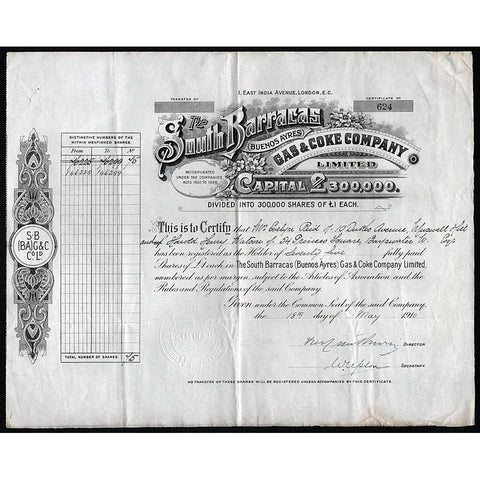 1, EAST INDIA AVENUE, LONDON, E.C.
TRANSFER Nº
CERTIFICATE Nº
624
The South Barracas
(BUENOS AYRES)
GAS & COKE COMPANY
LIMITED
INCORPORATED
UNDER THE COMPANIES
ACTS 1862 TO 1898.
CAPITAL £300,000.
DIVIDED INTO 300,000 SHARES OF £1 EACH.
DISTINCTIVE NUMBERS OF THE
WITHIN MENTIONED SHARES
From To
146225 146299 75
S·B
(BA)G&C
Co Ld
This is to Certify that Mr. Evelyn Reid of 10 Avenue,
Henry of 34 Princes Square, Bayswater W.
has been registered as the Holder of Seventy five fully paid
Shares of £1 each in The South Barracas (Buenos Ayres) Gas & Coke Company Limited,
numbered as per margin, subject to the Articles of Association and the
Rules and Regulations of the said Company.
Given under the Common Seal of the said Company,
the 18th day of May 1910
DIRECTOR
SECRETARY
TOTAL NUMBER OF SHARES. 75
NO TRANSFER OF THESE SHARES WILL BE REGISTERED UNLESS ACCOMPANIED BY THIS CERTIFICATE.